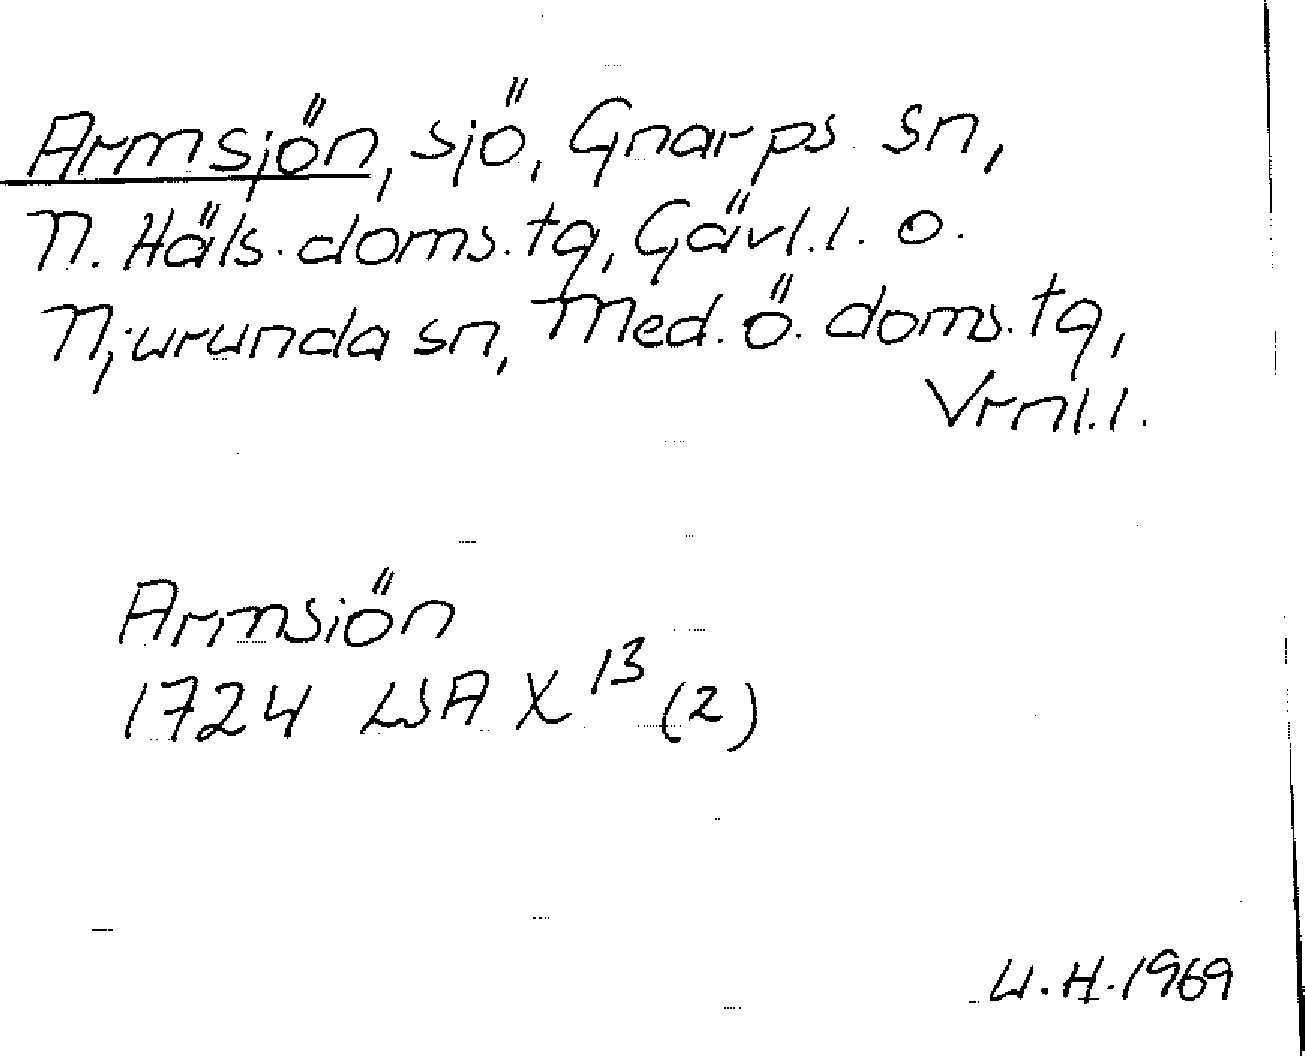 Armsjön, sjö, Gnarps sn,
N. Häls. doms. tg, Gävl.l. o.
Njurunda sn, Med. ö. doms. tg,
Vrnl.l.
Armsiön
1724 LSA X 13 (2)
U.H. 1969